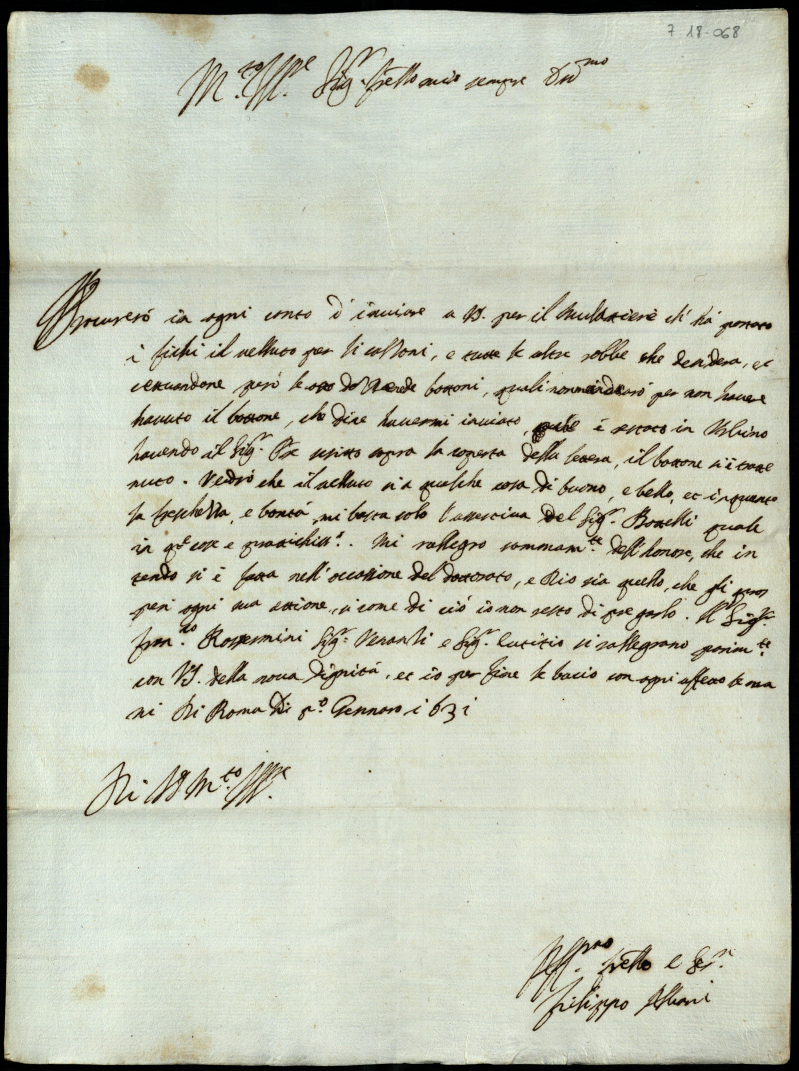 7 18-068
M.to Ill.re Sig.r fratello mio sempre
Procurerò in ogni conto d'inviare a V.S. per il Mulattiere ch'ha portato
i fichi il velluto per li calzoni, e tutte le altre robbe che desidera, ec
cettuandone però le bottoni, quali non mandarò per non havere
havuto il bottone, che dice havermi inviato, quale è restato in Urbino
havendo il Sig.r scritto sopra la coperta della lettera, il bottone si è tratte
nuto. Vedrò che il velluto sia qualche cosa di buono, e bello, et in quanto
la freschezza, e bontà, mi basta solo l'assertiva del Sig.r Bonelli quale
in q.te cose e pratichiss.o. Mi rallegro sommam.te dell'honore, che in
tendo si è fatta nell'occasione del dottorato, e Dio sia quello, che gli pros
peri ogni sua attione, si come di ciò io non resto di pregarlo. Il Sig.r
Fran.co Rossermini Sig.r Venanti e Sig.r Cutitio si rallegrano parim.te
con V.S. della nova dignità, et io per fine le bacio con ogni affetto le ma
ni Di Roma Di p.o Gennaro 1631
Di V.S. M.to Ill.re
Aff.mo fratello e Ser.re
Filippo Albani